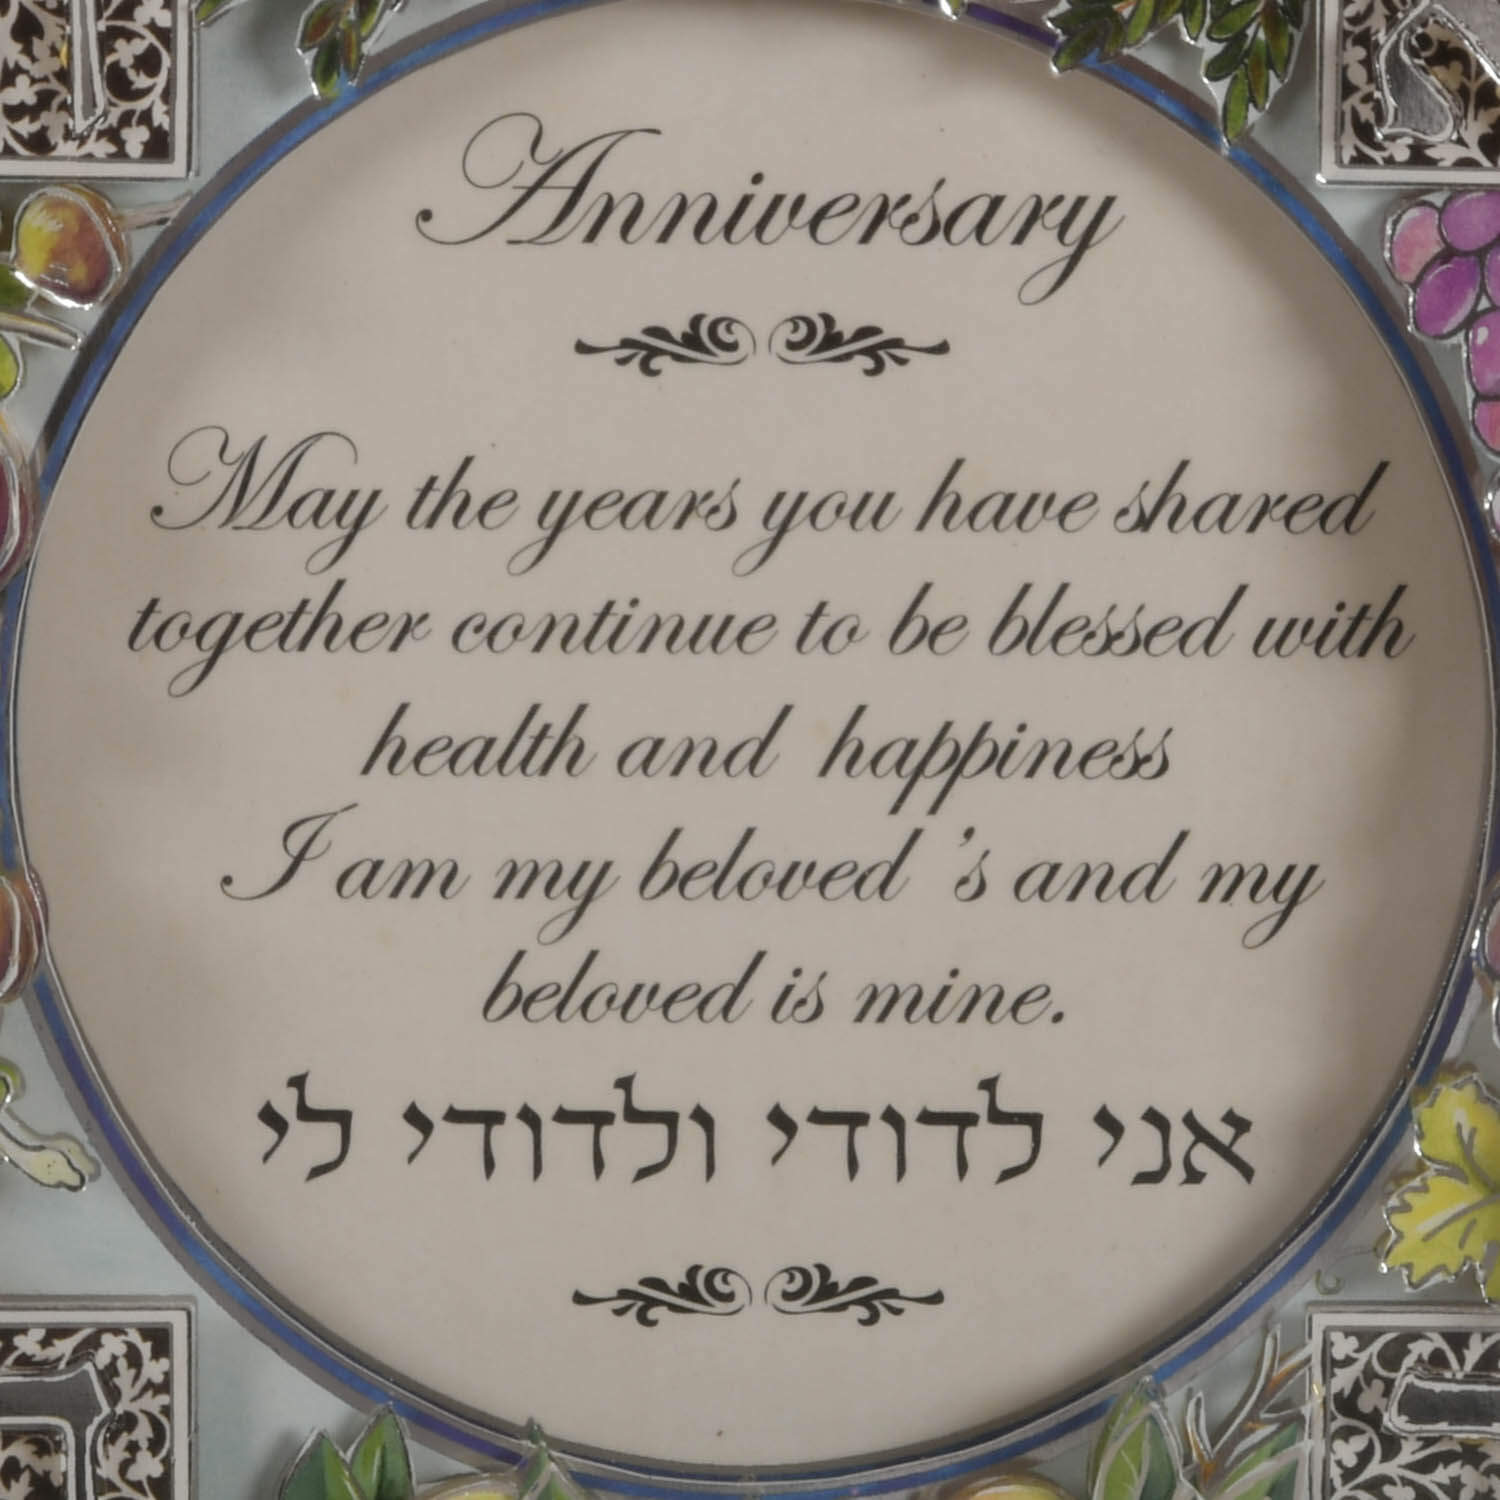 Anniversary
May the years you have shared
together continue to be blessed with
health and happiness
I am my beloved 's and my
beloved is mine.
אני לדודי ולדודי לי